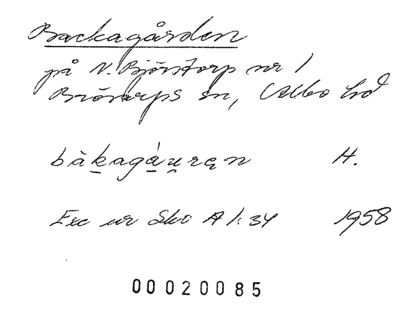 Backagården
på N. Björstorp nr 1
Brösarps sn, Albo hd
bàkagáuṛąn H.
Exc ur Sko A 1:34 1958
00020085